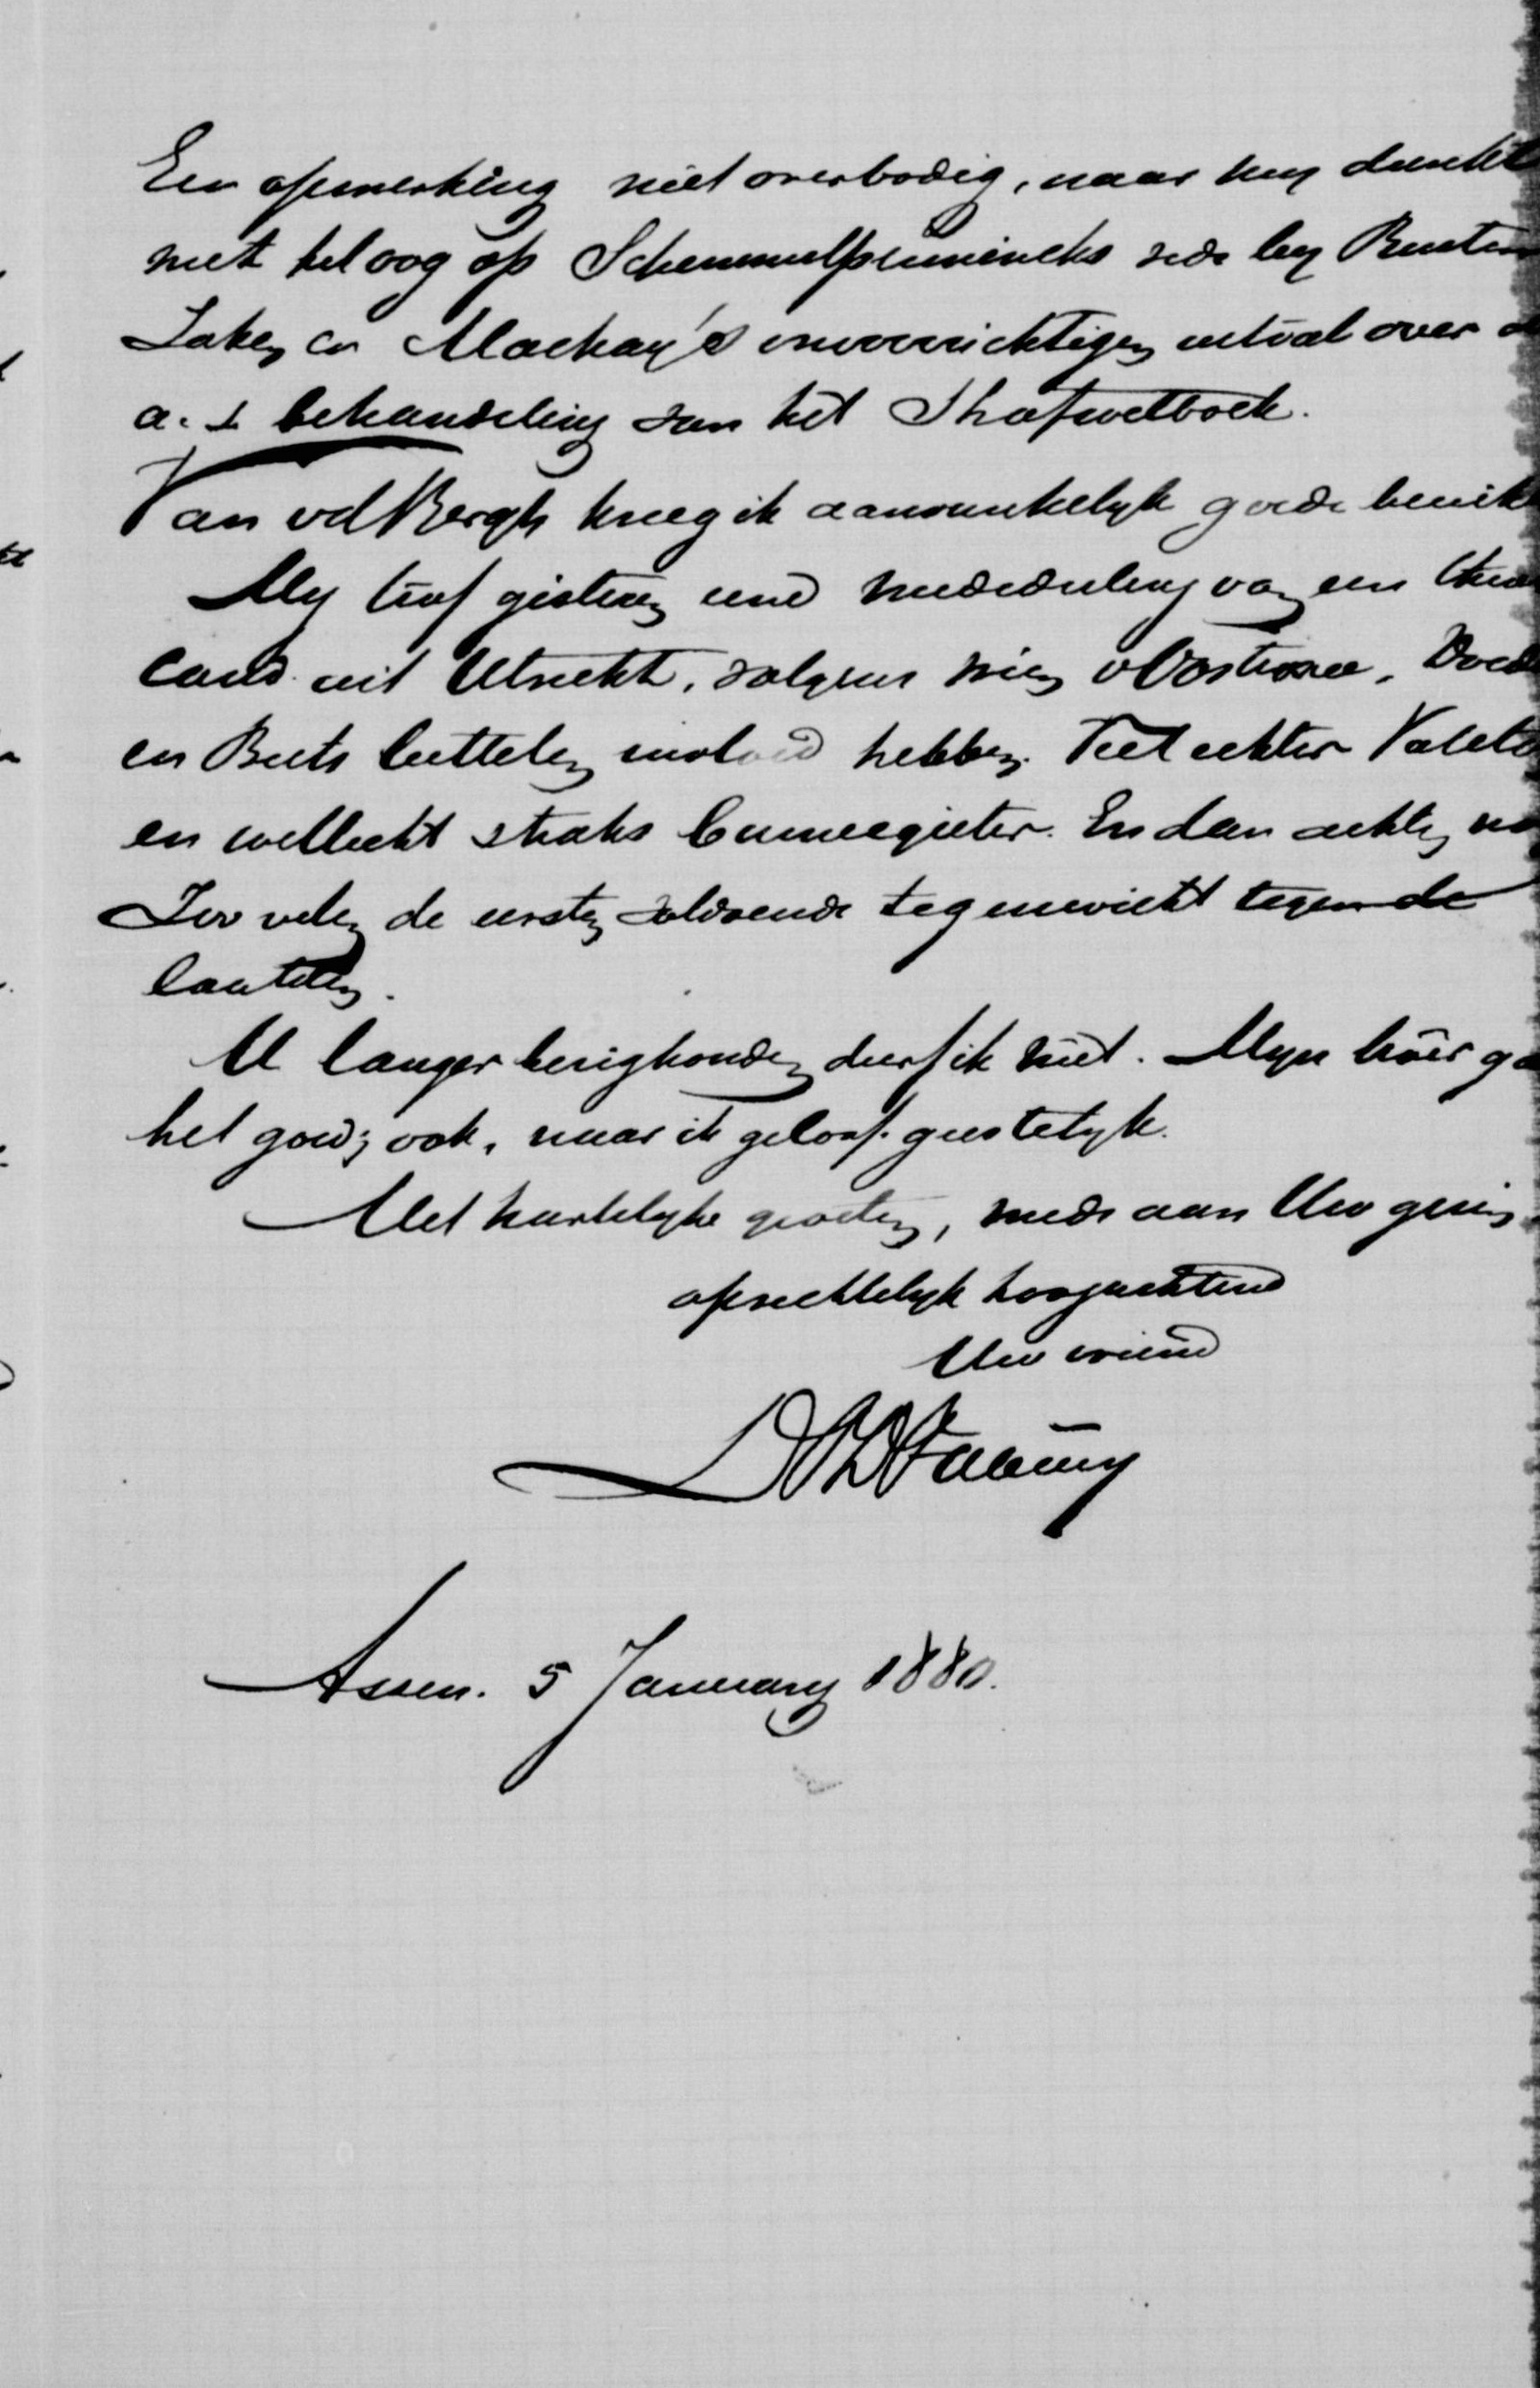 Een opmerking niet overbodig, naar my dunkt
met het oog op Schimmelpennincks rede by Buiten
Zaken en Mackay's onvoorzichtigen uitval over d
a. s behandeling van het Strafwetboek.
Van vd Bergh kreeg ik aanvankelyk goede bericht
My trof gisteren eene mededeeling van een theol
cand. uit Utrecht, volgens wien v Oosterzee, Doed
en Beets luttelen invloed hebben. Veel echter Valeto
en wellicht straks Cannegieter. En dan achten
zoo velen de eersten voldoende tegenwicht tegen de
laatsten.
U langer bezighouden durf ik niet. Myn broer ga
het goed; ook, naar ik geloof. geestelyk.
Met hartelyke groeten, mede aan Uw gezin,
oprechtelyk hoogachtend
Uw vriend
Assen. 5 January 1880.